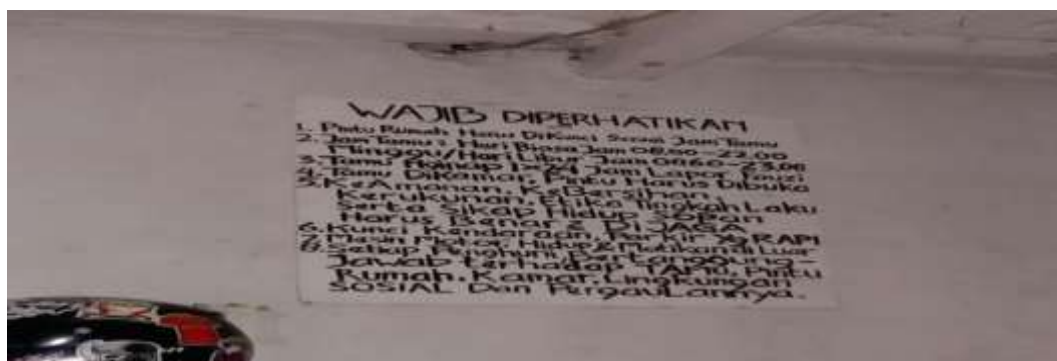 WAJIB DIPERHATIKAN
1. Pintu Rumah Harus DiKunci Sesuai Jam Tamu
2. Jam Tamu : Hari Biasa Jam 08.00 - 22.00
Minggu/Hari Libur Jam 08.00 - 23.00
3. Tamu Nginap 1x24 Jam Lapor
4. Tamu DiKamar, Pintu Harus Dibuka
5. KeAmanan, KeBersihan,
Kerukunan, Etika Tingkah Laku
Serta Sikap Hidup SOPAN
Harus Benar2 DiJAGA
6. Kunci Kendaraan, Parkir Yg RAPI
7. Mesin Motor, Hidup & Matikan di Luar
8. Setiap Penghuni Bertanggung-
Jawab terhadap TAMU, Pintu
Rumah, Kamar, Lingkungan
SOSIAL Dan Pergaulannya.